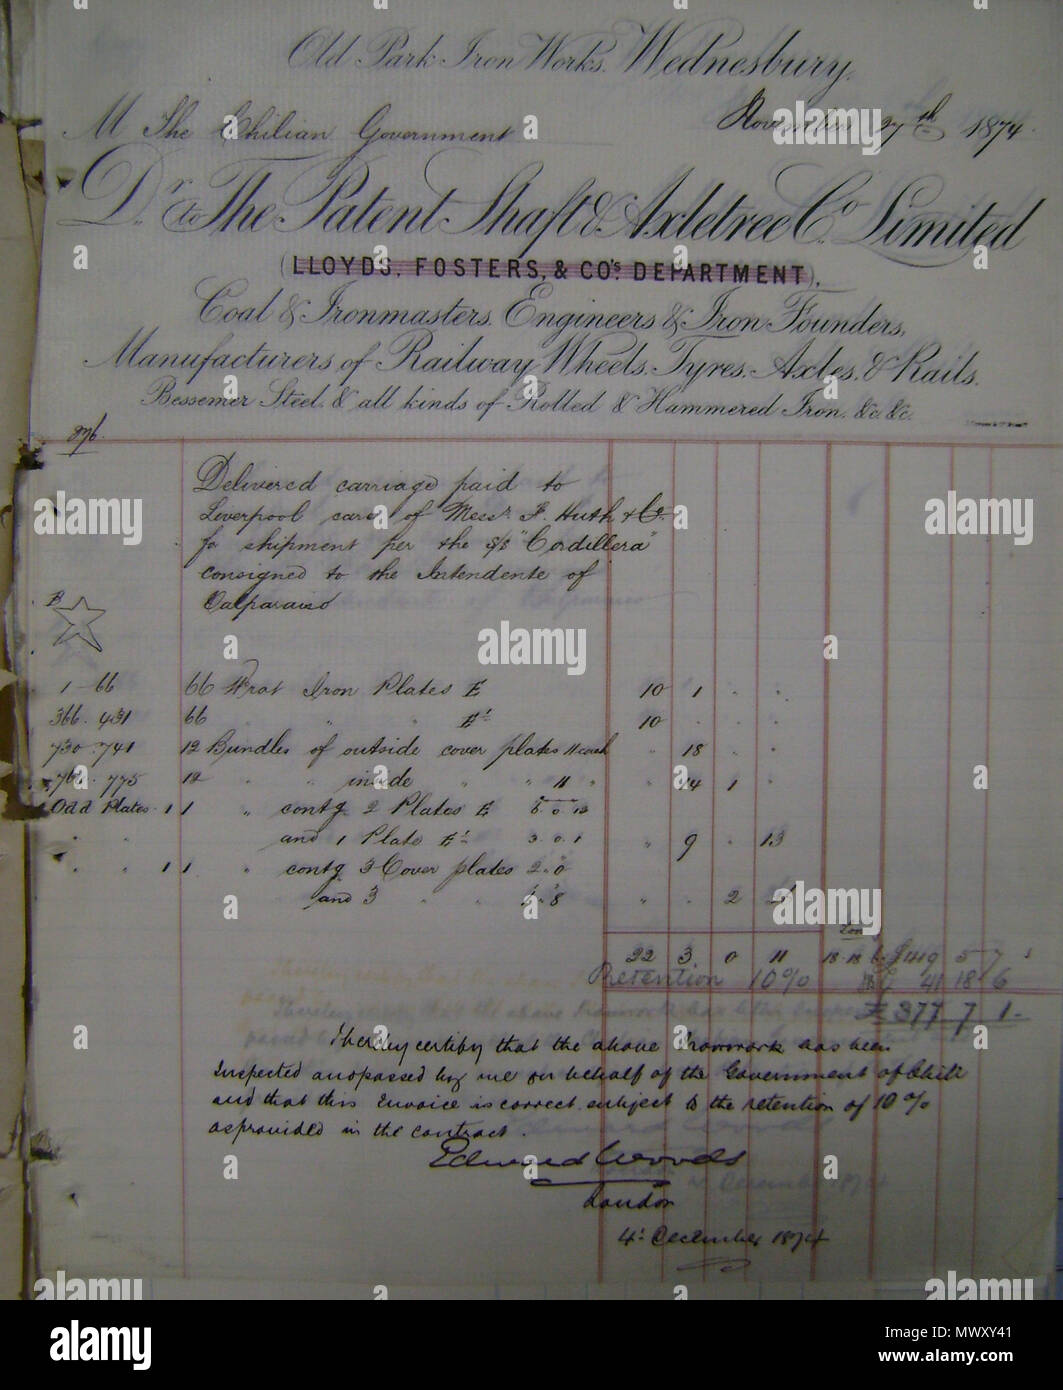 Old Park Iron Works. Wednesbury,
November 27th 1874
M The Chilian Government
Dr. to The Patent Shaft & Axletree Co. Limited
(LLOYDS, FOSTERS, & CO'S DEPARTMENT),
Coal & Ironmasters. Engineers & Iron Founders,
Manufacturers of Railway Wheels. Tyres. Axles. & Rails.
Bessemer Steel. & all kinds of Rolled & Hammered Iron. &c. &c.
Delivered carriage paid to
Liverpool care of Messrs F. Huth & Co.
for shipment per the S/S "Cordillera"
consigned to the Intendente of
Valparaiso
B
1 - 66 66 Wrot Iron Plates E 10 1 " "
366 - 431 66 " " E' 10 " " "
730 - 741 12 Bundles of outside cover plates 11 each " 18 " "
775 12 " " inside " " 11 " " 14 1 "
Odd Plates - 1 1 " contg 2 Plates E 6 0 12
" " and 1 Plate E' 3. 0. 1 " 9 " 13
" " 1 1 " contg 3 Cover plates 2. 0
and 3 " " " " 2
Tons
22 3 0 11 18. 18. £419 5 7
Retention 10% 41 18 6
£ 377 7 1
I hereby certify that the above Ironwork has been
inspected and passed by me on behalf of the Government of Chili
and that this Invoice is correct subject to the retention of 10%
as provided in the contract.
Edward Woods
London
4' December 1874
alamy
alamy
alamy
alamy
alamy
alamy
alamy
alamy
alamy
alamy
alamy
alamy stock photo
Image ID: MWXY41
www.alamy.com